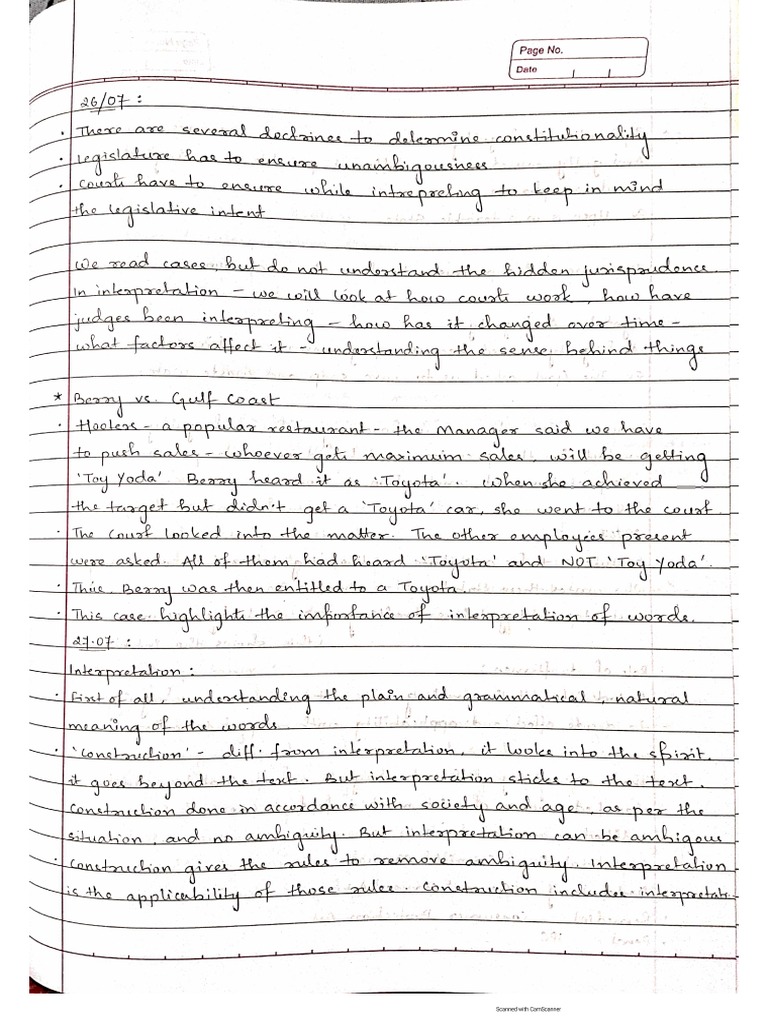 Page No.
Date
26/07 :
· There are several doctrines to determine constitutionality
· Legislature has to ensure unambigousness
· Courts have to ensure while intrepreting to keep in mind
the legislative intent
We read cases, but do not understand the hidden jurisprudence.
In interpretation - we will look at how courts work, how have
judges been interpreting - how has it changed over time -
what factors affect it - understanding the sense behind things
* Berry vs. Gulf Coast
· Hooters - a popular restaurant - the Manager said we have
to push sales - whoever gets maximum sales, will be getting
'Toy Yoda' Berry heard it as 'Toyota'. When she achieved
the target but didn't get a 'Toyota' car, she went to the court.
· The court looked into the matter. The other employees present
were asked. All of them had heard 'Toyota' and NOT 'Toy Yoda'.
· This, Berry was then entitled to a Toyota.
· This case highlights the importance of interpretation of words.
27.07 :
Interpretation :
· First of all, understanding the plain and grammatical, natural
meaning of the words
· 'Construction' - diff. from interpretation, it looks into the spirit,
it goes beyond the text. But interpretation sticks to the text.
Construction done in accordance with society and age, as per the
situation, and no ambiguity. But interpretation can be ambigous
· Construction gives the rules to remove ambiguity. Interpretation
is the applicability of those rules. Construction includes interpretati
Scanned with CamScanner